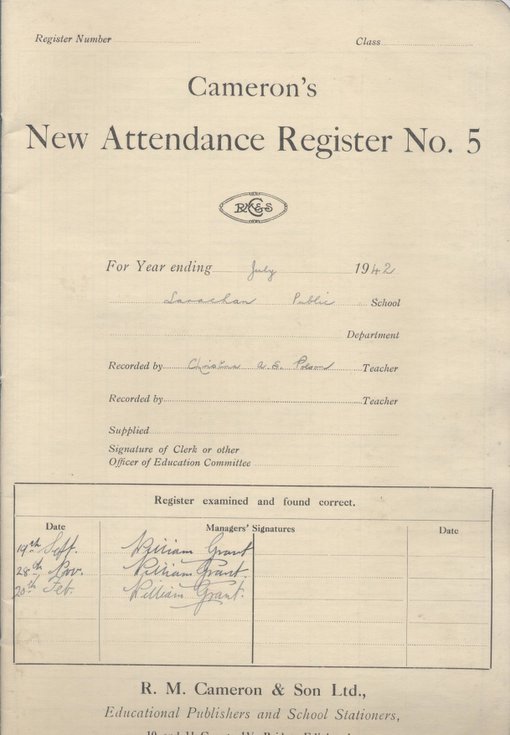 Register Number Class
Cameron's
New Attendance Register No. 5
R.M.C&S
For Year ending July 1942
Public School
Department
Recorded by Christina W. S. Polson Teacher
Recorded by Teacher
Supplied
Signature of Clerk or other
Officer of Education Committee
Register examined and found correct.
Date Managers' Signatures Date
19th Sept. William Grant
28th Nov. William Grant.
20th Feb. William Grant.
R. M. Cameron & Son Ltd.,
Educational Publishers and School Stationers,